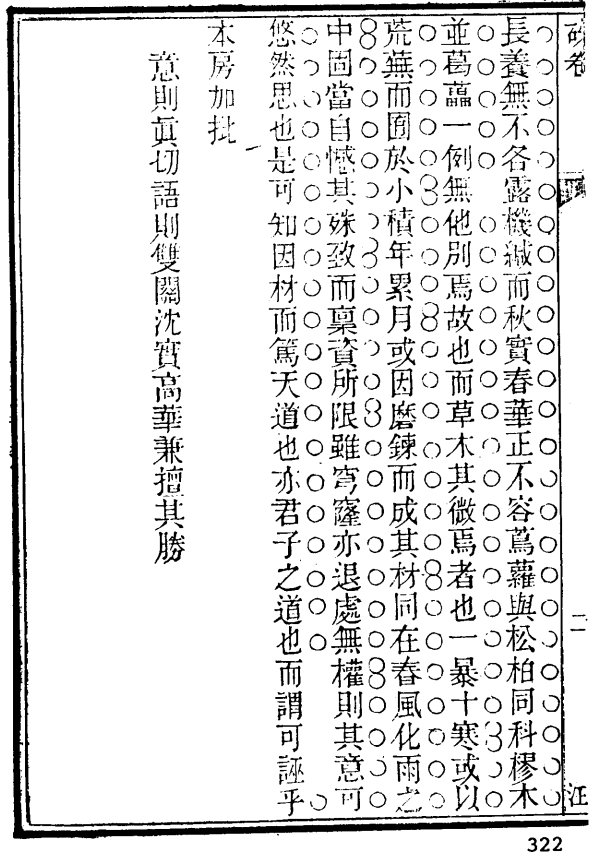 硃卷
二
汪
長養無不各露機緘而秋實春華正不容蔦蘿與松柏同科樛木
並葛藟一例無他別焉故也而草木其微焉者也一暴十寒或以
荒蕪而囿於小積年累月或因磨鍊而成其材同在春風化雨之
中固當自憾其殊致而稟資所限雖穹窿亦退處無權則其意可
悠然思也是可知因材而篤天道也亦君子之道也而謂可誣乎
本房加批
意則眞切語則雙關沈實高華兼擅其勝
322